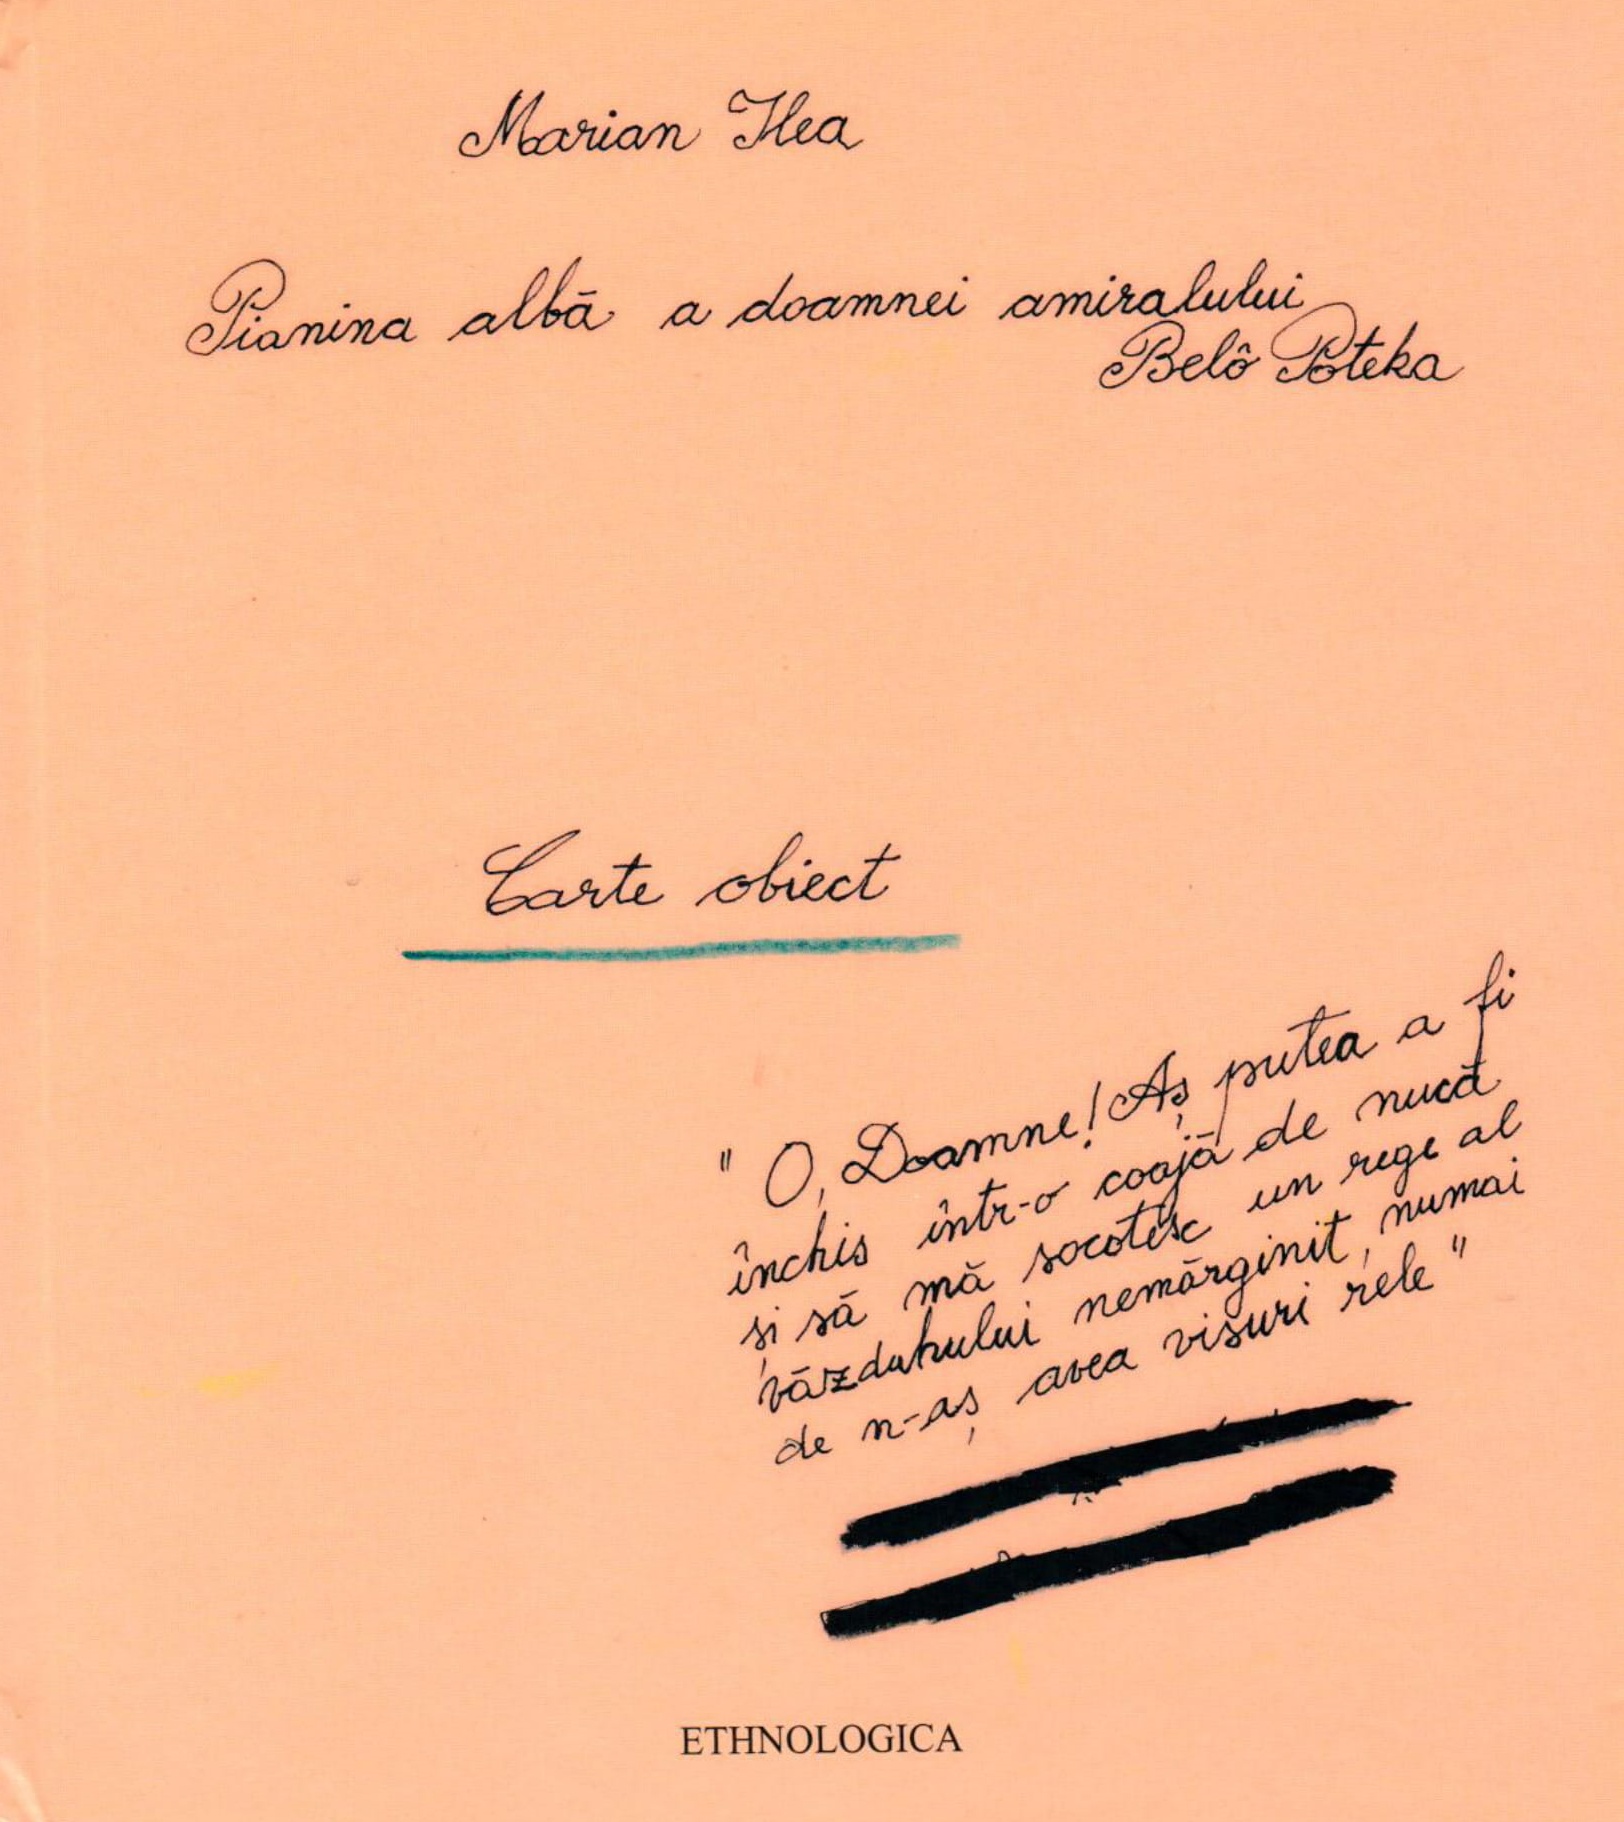 Marian Ilea
Pianina albă a doamnei amiralului
Belô Poteka
Carte obiect
" O, Doamne! Aș putea a fi
închis într-o coajă de nucă
și să mă socotesc un rege al
văzduhului nemărginit, numai
de n-aș avea visuri rele "
ETHNOLOGICA